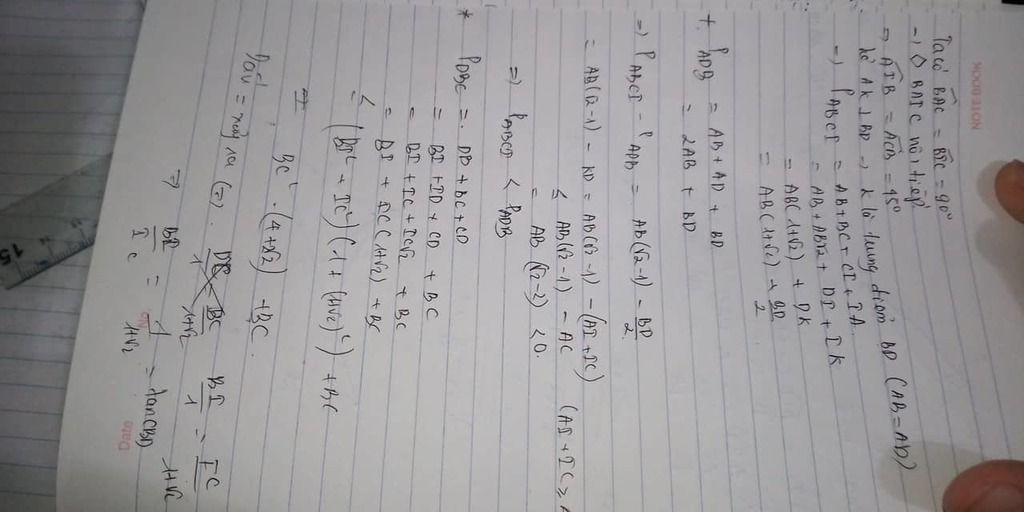 NOTEBOOK
Ta có BAC = BIC = 90°
→ ◇ BAIC nội tiếp
⇒ AIB = ACB = 45°
kẻ AK ⊥ BD → K là trung điểm BD (AB = AD)
⇒ P_ABCI = AB + BC + CI + IA
= AB + AB√2 + DI + IK
= AB(1+√2) + DK
= AB(1+√2) + BD/2
+ P_ADB = AB + AD + BD
= 2AB + BD
⇒ P_ABCI - P_ADB = AB(√2-1) - BD/2
= AB(√2-1) - KD = AB(√2-1) - (AI + IC)
≤ AB(√2-1) - AC (AI + IC ≥
= AB(√2-2) < 0
⇒ P_ABCI < P_ADB
* P_DBC = DB + BC + CD
= BI + ID + CD + BC
= BI + IC + IC√2 + BC
= BI + IC(1+√2) + BC
≤ (BI² + IC²)(1 + (1+√2)²) + BC
BC² · (4+√2) + BC
Dấu = xảy ra (=) BI/1 = IC/1+√2
⇒ BI/IC = 1/1+√2
Date
15